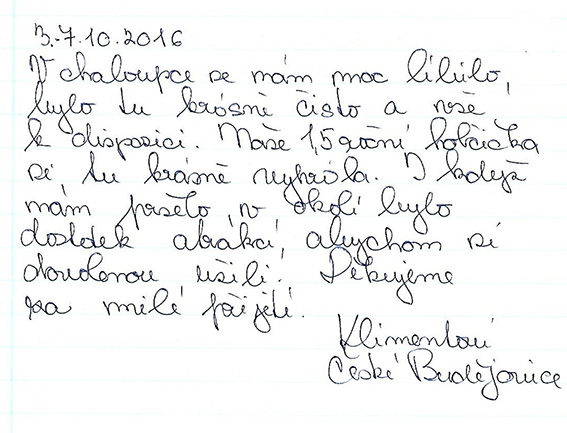 3.-7.10.2016
V chaloupce se nám moc líbilo,
bylo tu krásně čisto a vše
k dispozici. Naše 1,5 roční holčička
si tu krásně vyhrála. I když
nám pršelo, v okolí bylo
dostatek atrakcí, abychom si
dovolenou užili. Děkujeme
za milé přijetí.
Klimentovi
České Budějovice